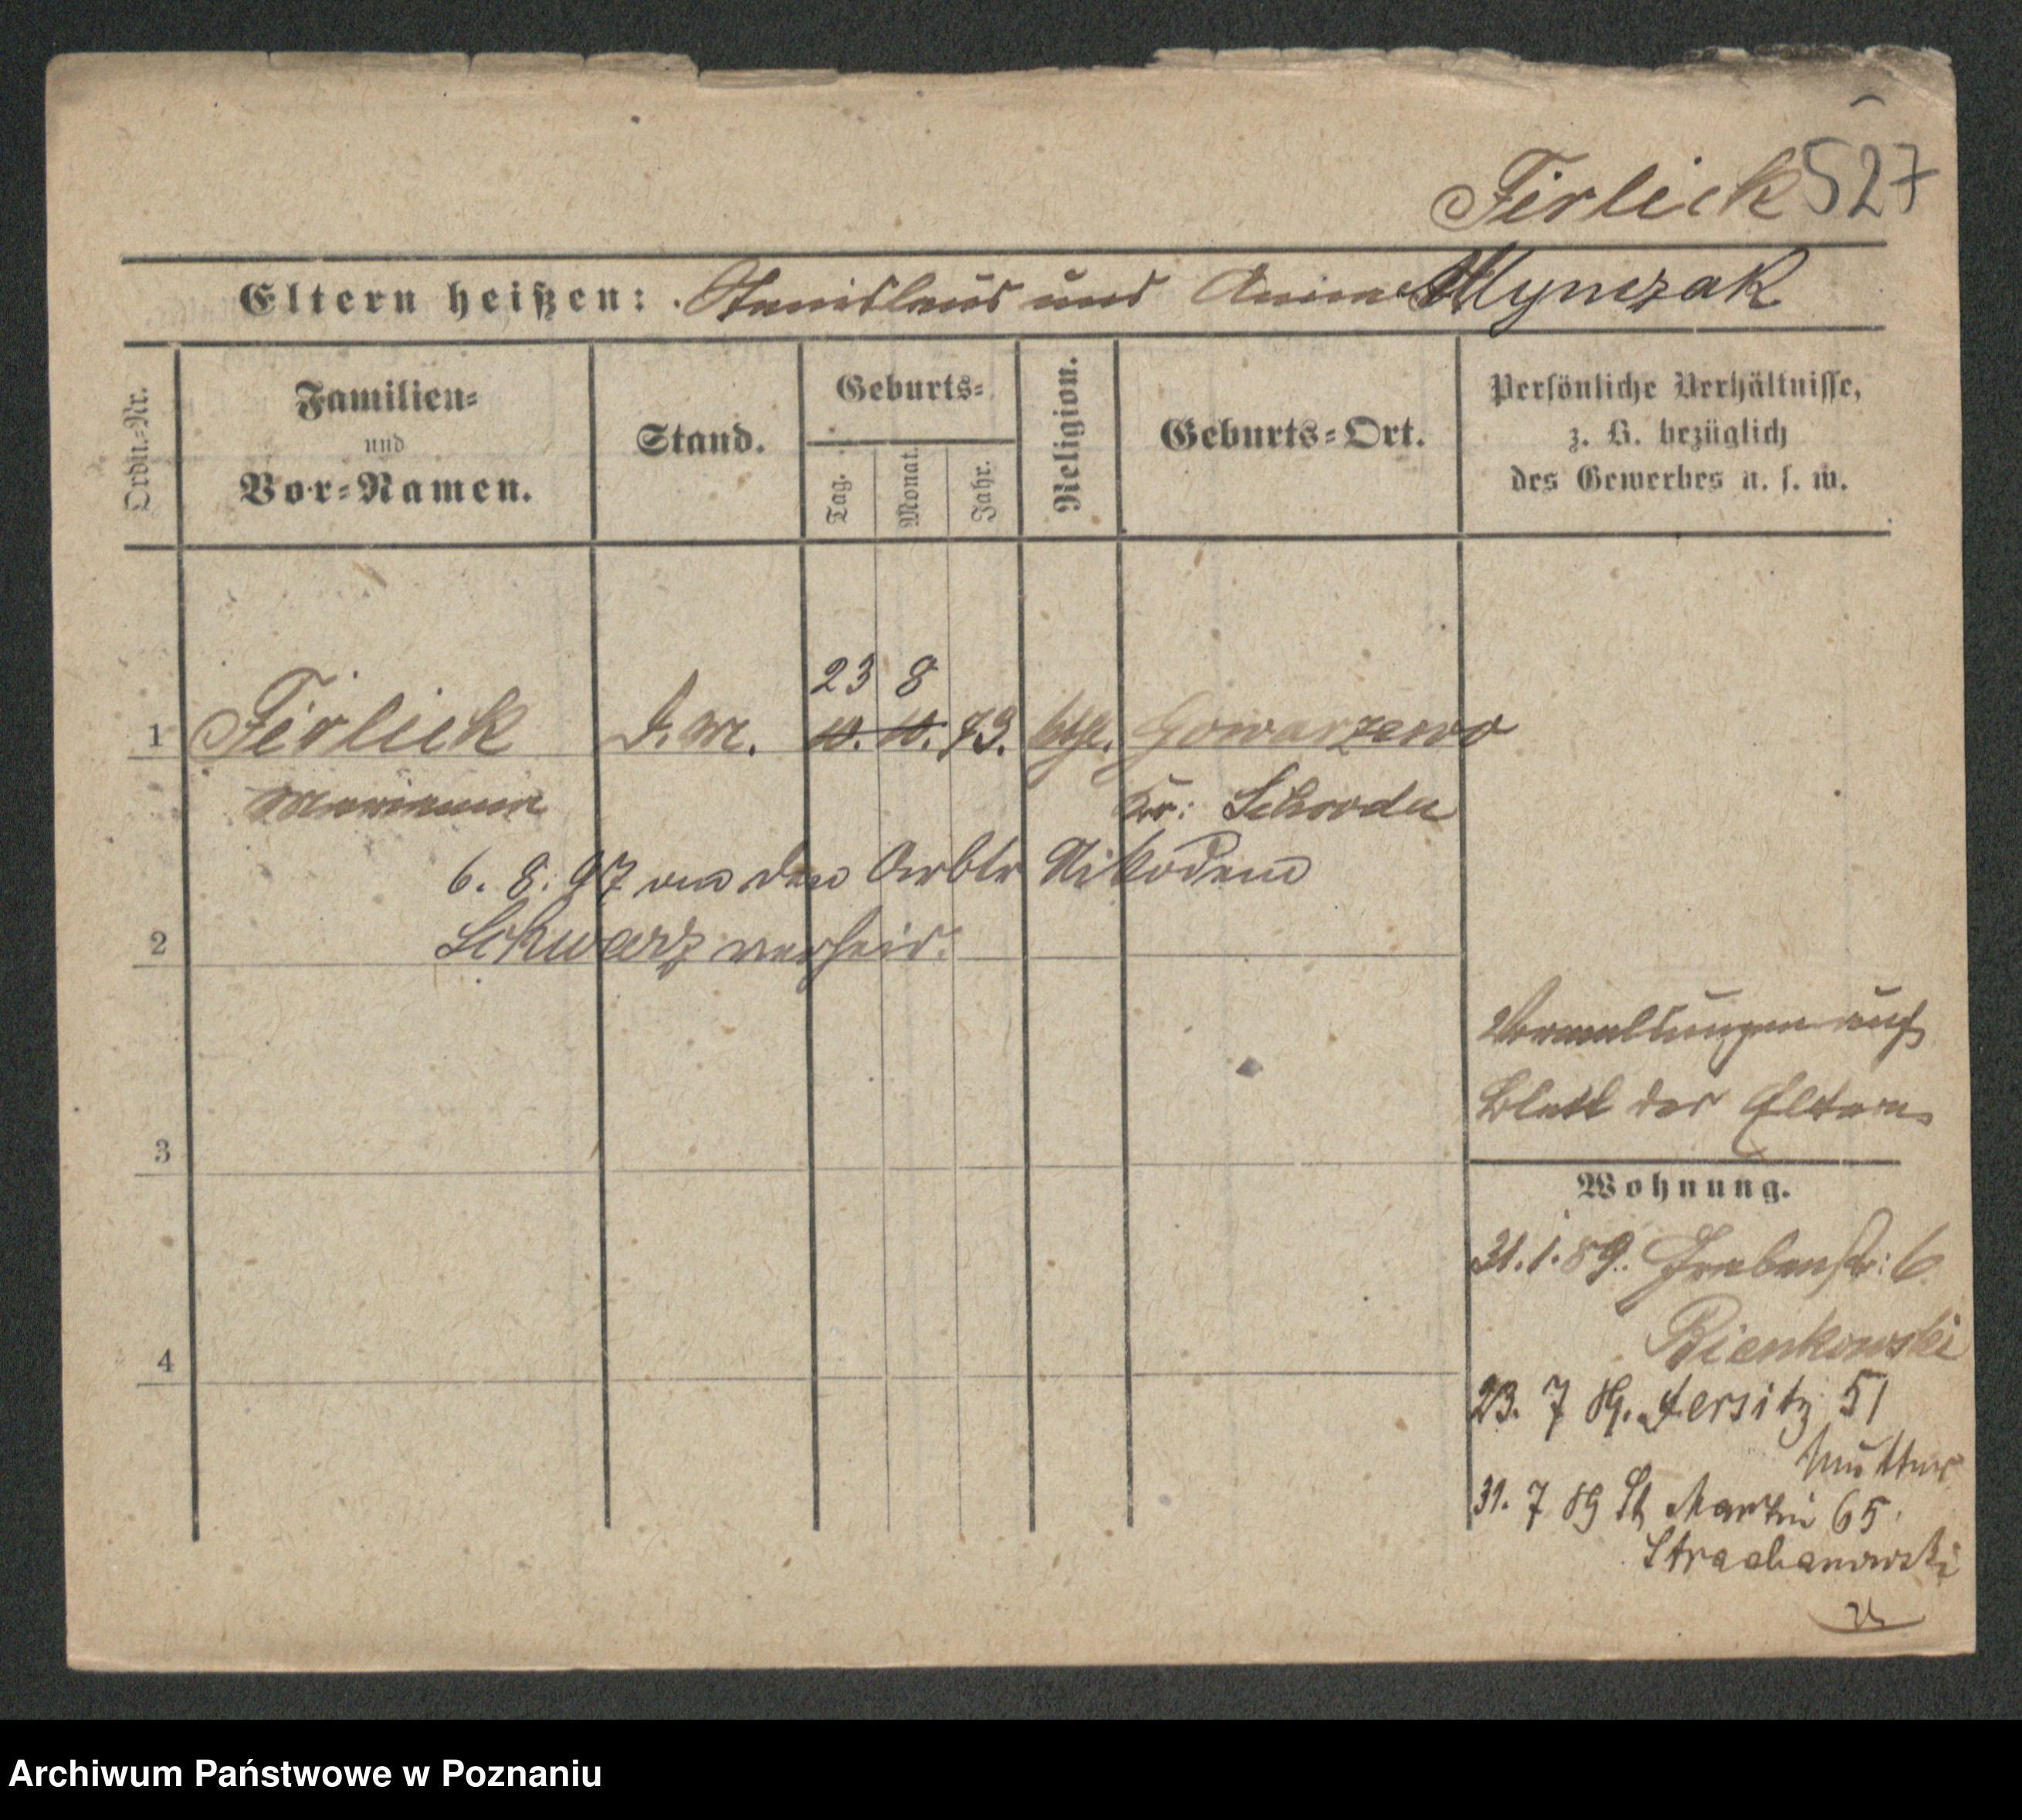 Firlick 527
Eltern heißen: Stanislaus und Anna Mlynczak
Ordn.-Nr.
Familien-
und
Vor-Namen.
Stand.
Geburts-
Tag.
Monat.
Jahr.
Religion.
Geburts-Ort.
Persönliche Verhältnisse,
z. B. bezüglich
des Gewerbes u. s. w.
23 8
1 Firlick D. M. 10. 10. 73. kth. Gowarzewo
Marianna Kr: Schroda
6. 8. 97 an den Arbtr Nikodem
2 Schwarz verheir.
Vermeldungen auf
Blatt der Eltern
3
Wohnung.
31. 1. 89. Grabenstr: 6
Bienkowski
4
23. 7 89. Jersitz 51
Mutter
31. 7 89 St Martin 65
Strachanowski
Archiwum Państwowe w Poznaniu